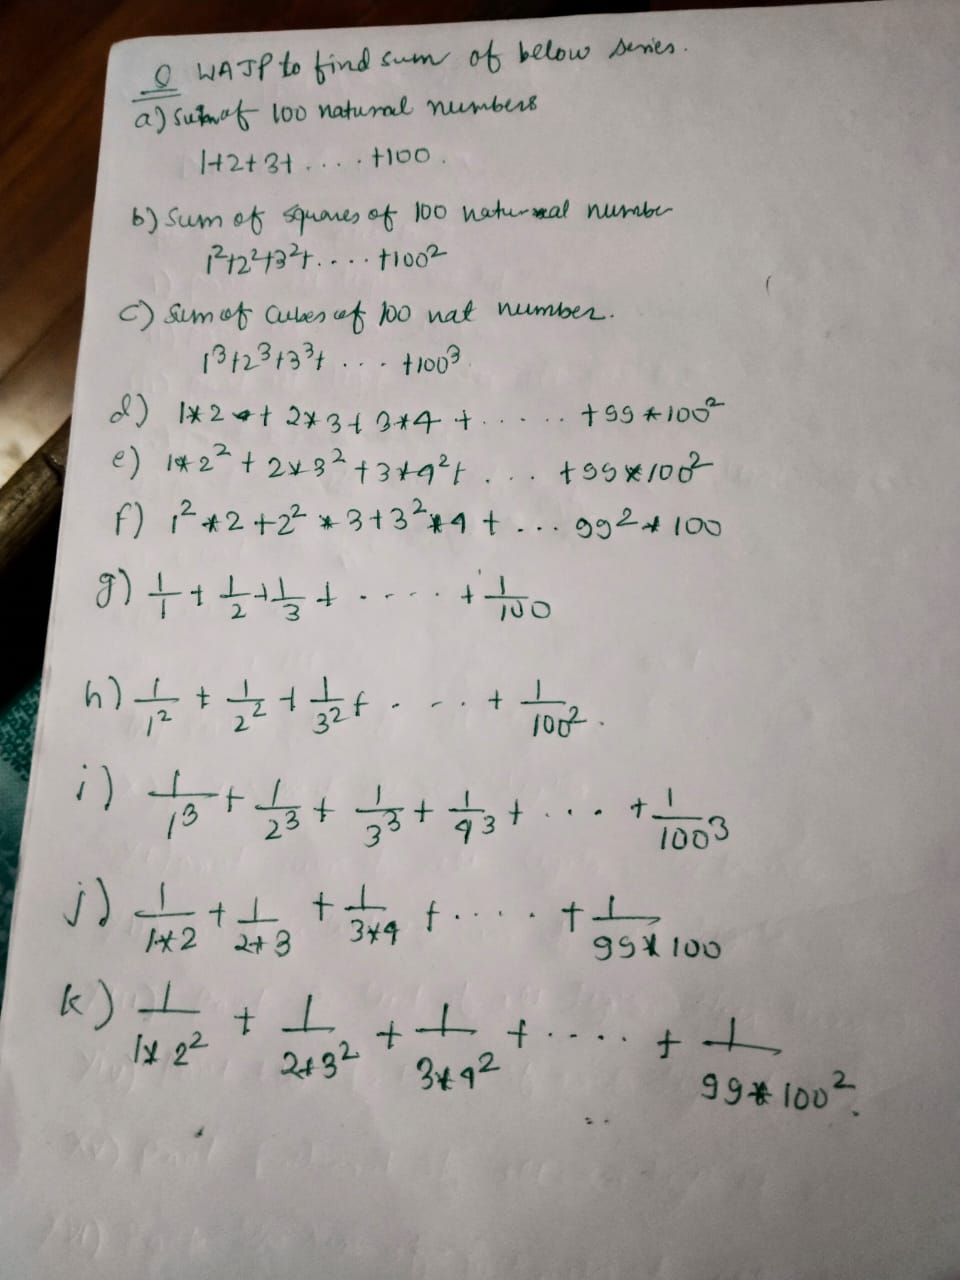 Q WAJP to find sum of below series.
a) Sum of 100 natural numbers
1+2+3+ .... +100.
b) Sum of squares of 100 natural number
1²+2²+3²+.... +100²
c) Sum of Cubes of 100 nat number.
1³+2³+3³+ ... +100³
d) 1*2 + 2*3+3*4 + ..... +99*100²
e) 1*2² + 2*3² +3*4²+ ... +99*100²
f) 1²*2+2²*3+3²*4 + ... 99²*100
g) 1/1 + 1/2 + 1/3 + ..... + 1/100
h) 1/1² + 1/2² + 1/3² + .... + 1/100².
i) 1/1³ + 1/2³ + 1/3³ + 1/4³ + .... + 1/100³
j) 1/1*2 + 1/2*3 + 1/3*4 + ..... + 1/99*100
k) 1/1*2² + 1/2*3² + 1/3*4² + ..... + 1/99*100².